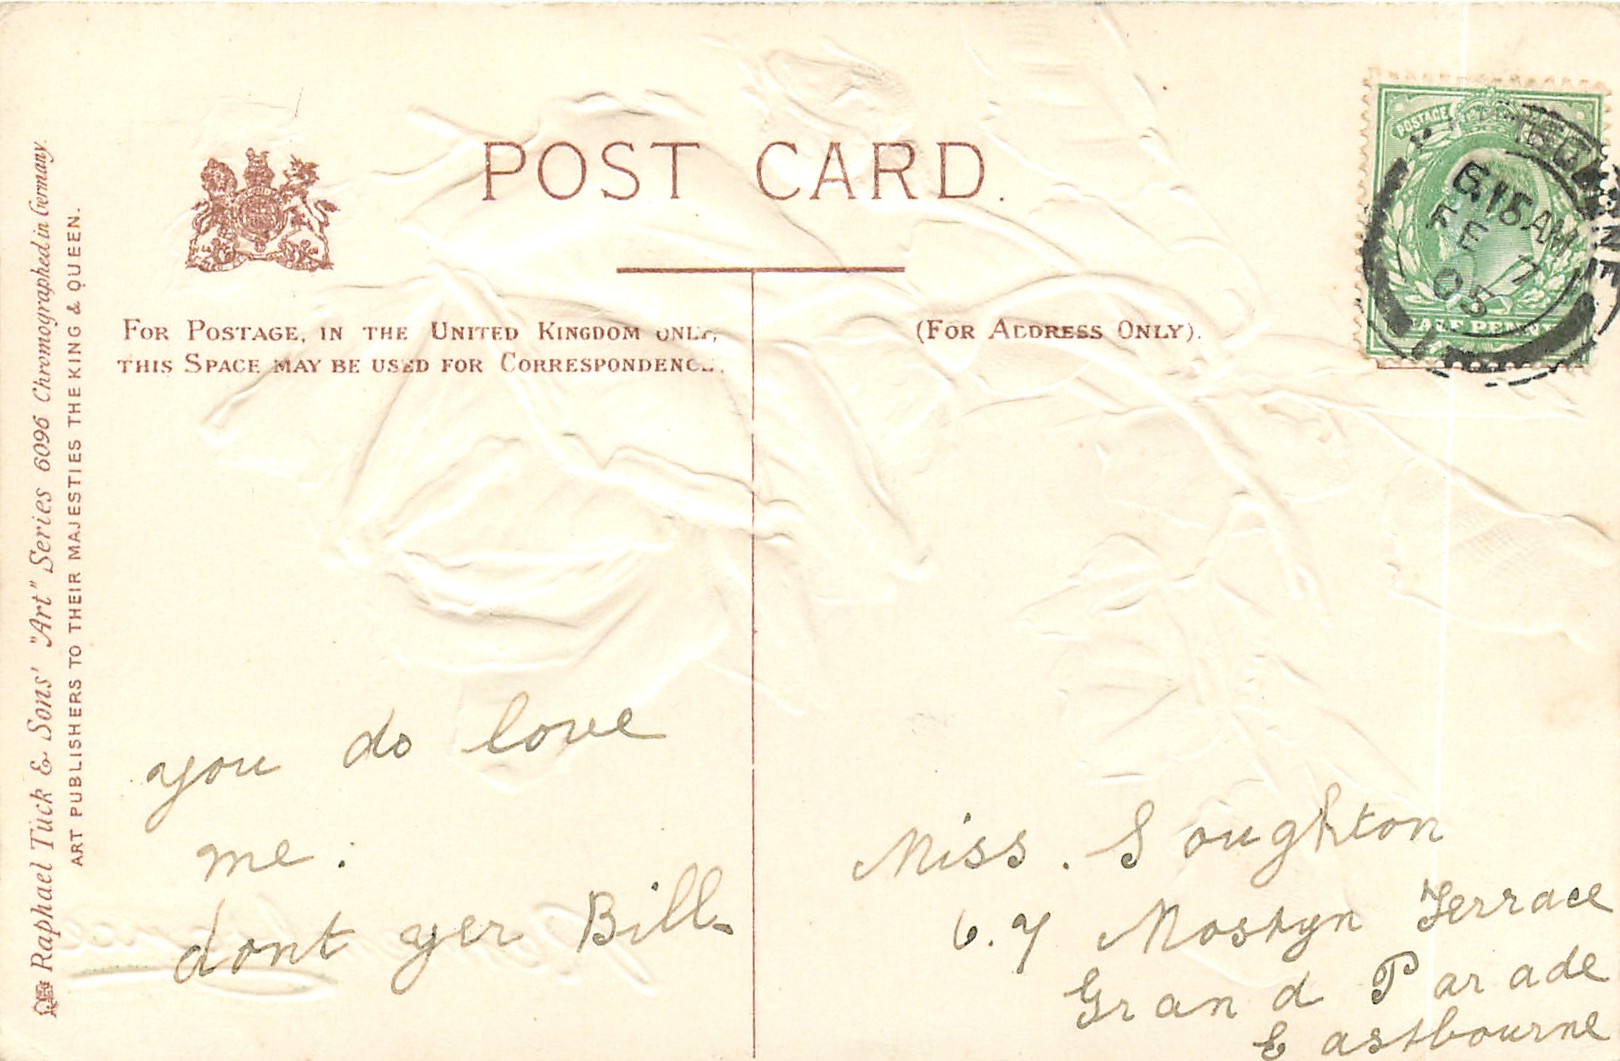 POST CARD.
FOR POSTAGE, IN THE UNITED KINGDOM ONLY,
THIS SPACE MAY BE USED FOR CORRESPONDENCE.
(FOR ADDRESS ONLY).
Raphael Tuck & Sons' "Art" Series 6096 Chromographed in Germany.
ART PUBLISHERS TO THEIR MAJESTIES THE KING & QUEEN.
POSTAGE
HALF PENNY
6.15 AM
FE 7
05
you do love
me.
dont yer Bill
Miss. Soughton
6.7 Mostyn Terrace
Grand Parade
Eastbourne